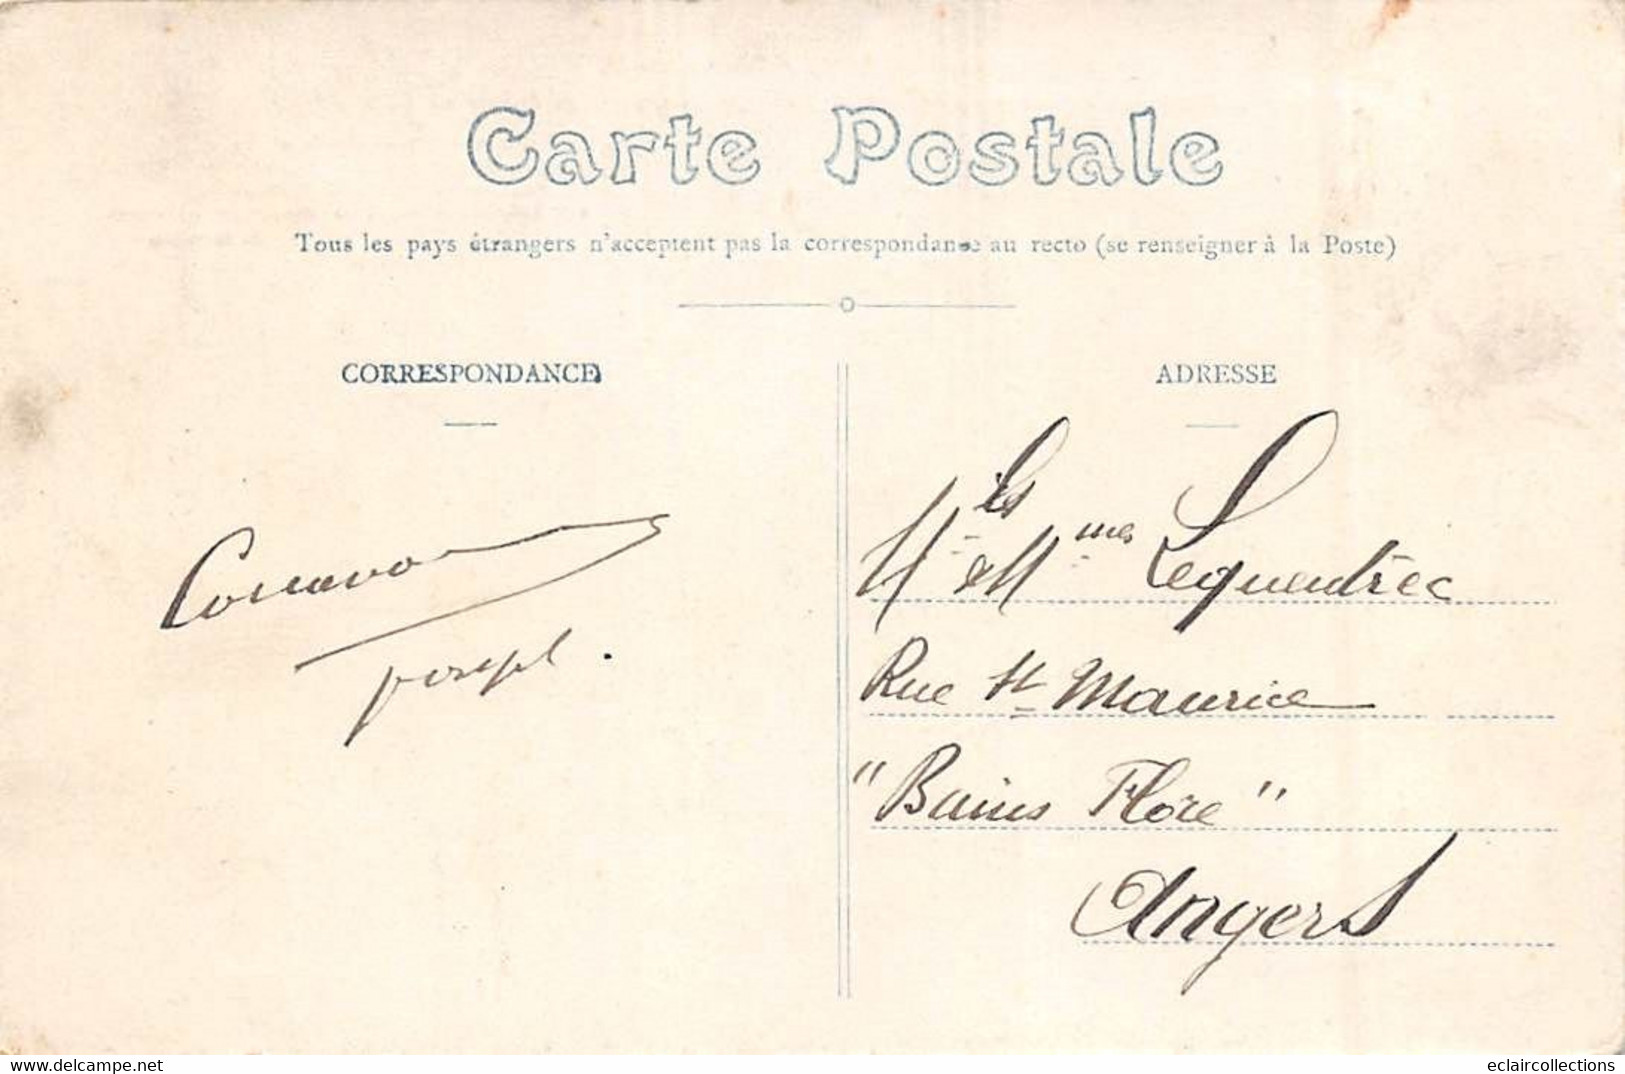 Carte Postale
Tous les pays étrangers n'acceptent pas la correspondance au recto (se renseigner à la Poste)
CORRESPONDANCE
ADRESSE
Joseph.
M & Mmes Lequentrec
Rue St Maurice
"Bains Flore"
Angers
www.delcampe.net
eclaircollections